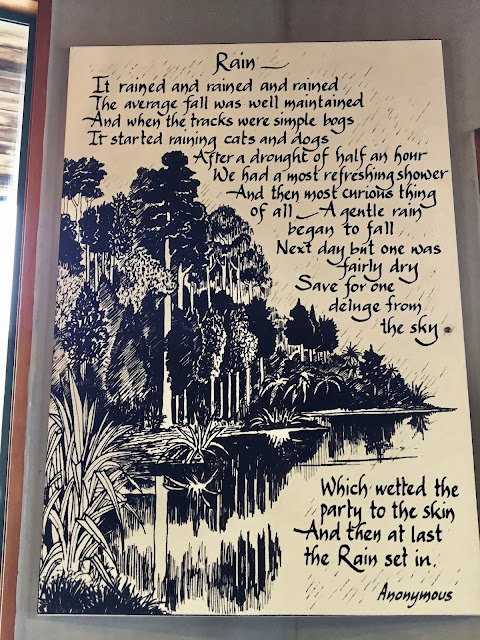 Rain —
It rained and rained and rained
The average fall was well maintained
And when the tracks were simple bogs
It started raining cats and dogs
After a drought of half an hour
We had a most refreshing shower
And then most curious thing
of all — A gentle rain
began to fall
Next day but one was
fairly dry
Save for one
deluge from
the sky
Which wetted the
party to the skin
And then at last
the Rain set in.
Anonymous